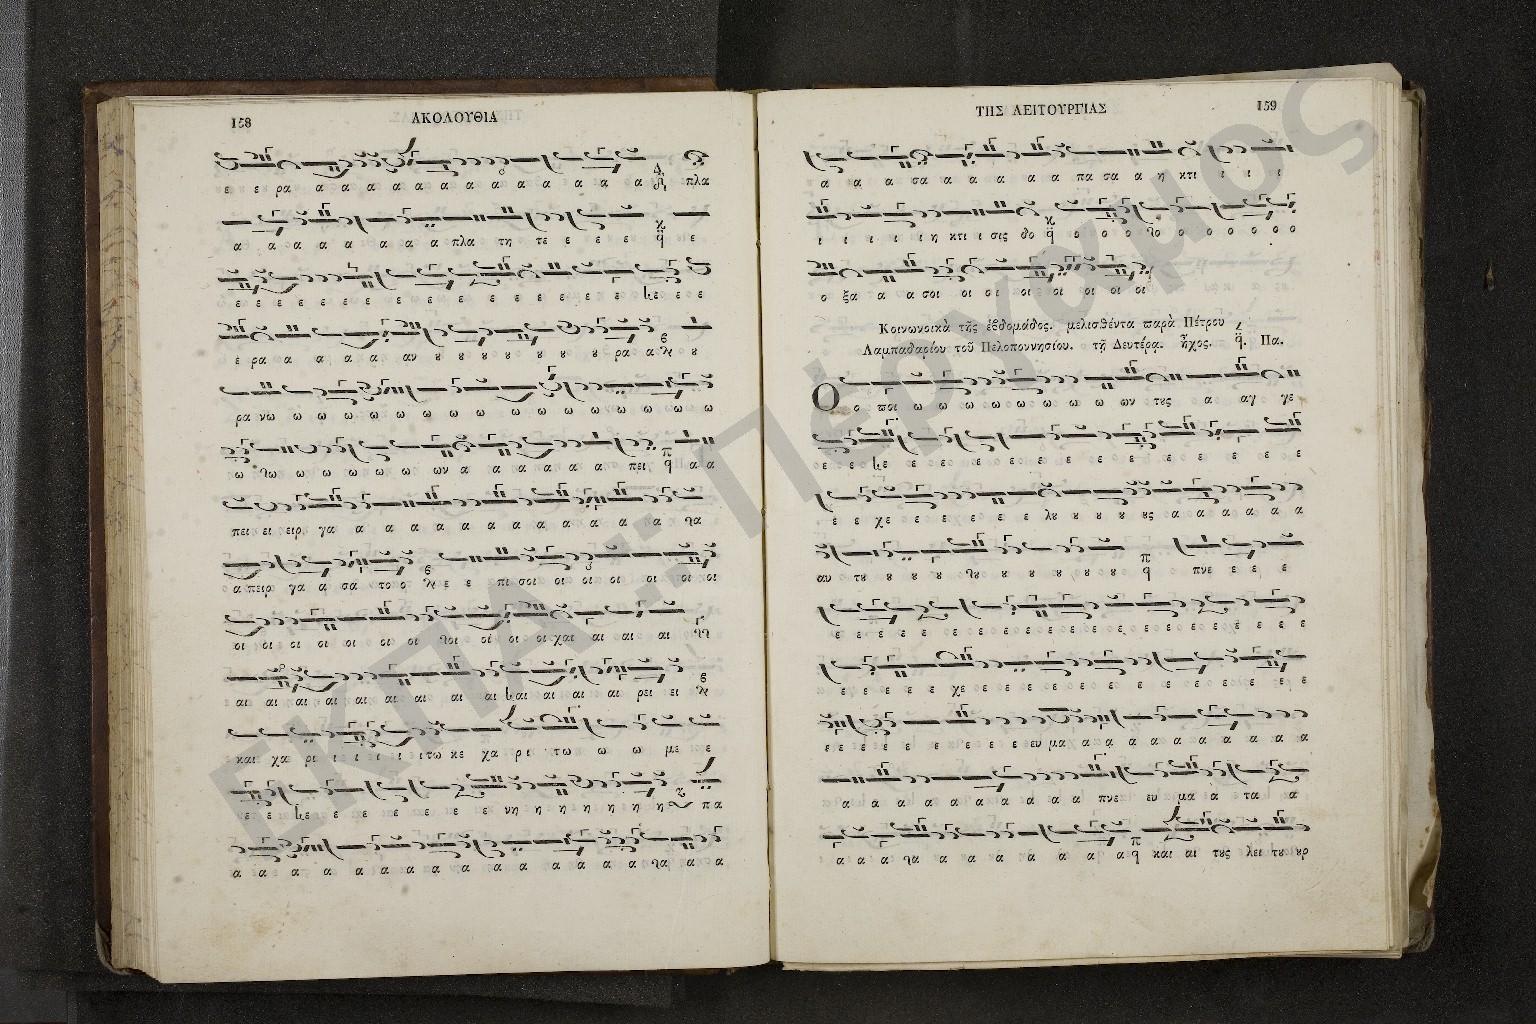 158
ΑΚΟΛΟΥΘΙΑ
ε ε ρα α α α α α α α α α α α α α α πλα
α α α α α α α πλα τη τε ε ε ε ε
ε ε ε ε ε ε ε ε ε ε ε ε ε ε ε ε ε ε
ε ρα α α α α αν ου ου ου ου ου ου ου ρα α ου
ρα νω ω ω ω ω ω ω ω ω ω ω ω ω
ω θω ω ω ω ω ω ων α α α α α α πει α α
πει ει ειρ γα α α α α α α α α α α α να θα
α πειρ γα α σα το ο ε ε πι σοι οι οι οι οι οι οι
οι οι οι οι οι οι θοι οι οι οι χαι αι αι αι
αι αι αι αι αι αι αι αι αι αι αι αι ρει ει
και χα ρι ι ι ι ι ι τω κε χα ρι τω ω ω με ε
ε ε ε ε ε ε ε ε ε νη η η η η η η πα
α α α α α α α α α α α α α α θα α α
ΤΗΣ ΛΕΙΤΟΥΡΓΙΑΣ
159
α α α σα α α α α α πα σα α η κτι ι ι ι
ι ι ι ι ι η κτι ι σις δο ο ο ο θο ο ο ο ο ο
ο ξα α α σοι οι οι οι οι οι οι οι
Κοινωνοικὰ τῆς ἑβδομάδος. μελισθέντα παρὰ Πέτρου
Λαμπαδαρίου τοῦ Πελοποννησίου. τῇ Δευτέρᾳ. ἦχος. Πα.
Ο ο ποι ω ω ω ω ω ω ω ω ων τους α αγ γε
ε ε ε ε ε ε ε ε ε ε ε ε ε ε ε
ε ε χε ε ε ε ε ε λου ου ου ου ους α α α α α α
αυ του ου ου ου θου ου ου ου ου ου ου πνε ε ε ε
ε ε ε ε ε ε ε ε ε ε ε ε ε ε ε ε ε ε
ε ε ε ε ε χε ε ε ε ε ε ε ε ε ε ε ε ε
ε ε ε ε ε ε ε ε ε ε ε ευ μα α α α α α α α α α
α α α α α α α α α πνε ευ μα α τα α
α α α θα α α α α α α α και αι τους λει του ουρ